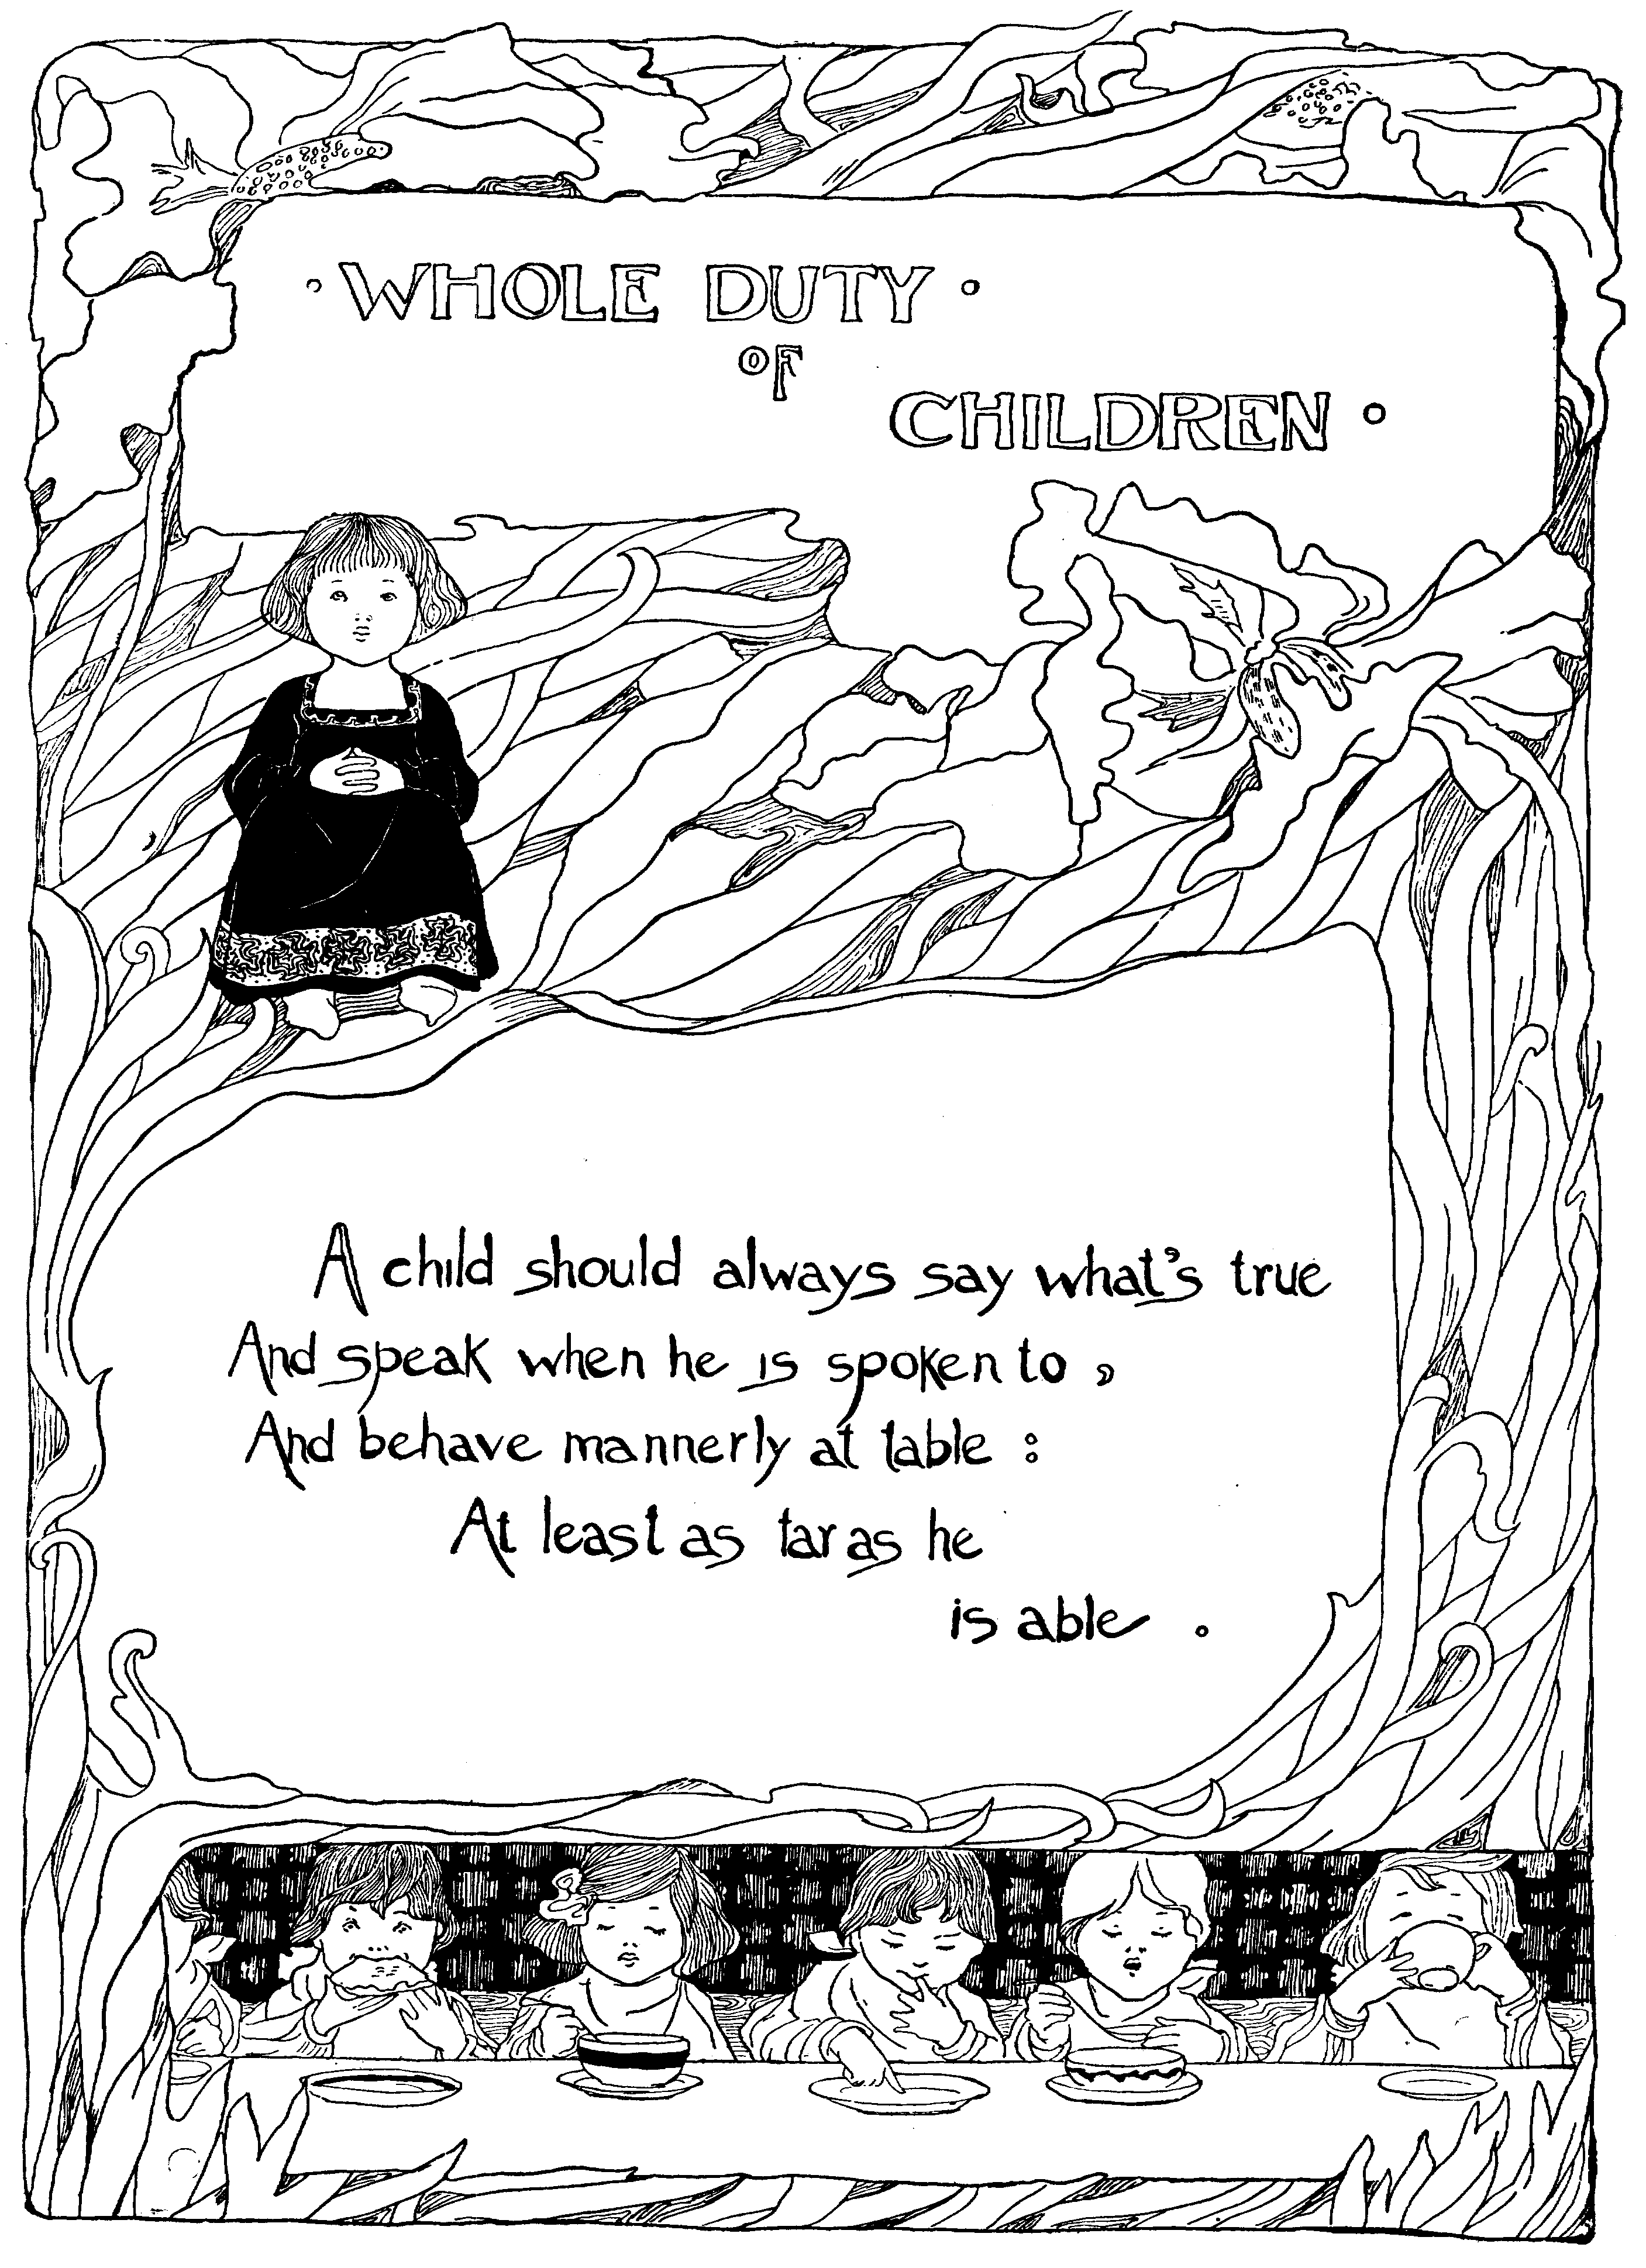 · WHOLE DUTY ·
OF
CHILDREN ·
A child should always say what's true
And speak when he is spoken to ,
And behave mannerly at table :
At least as far as he
is able .